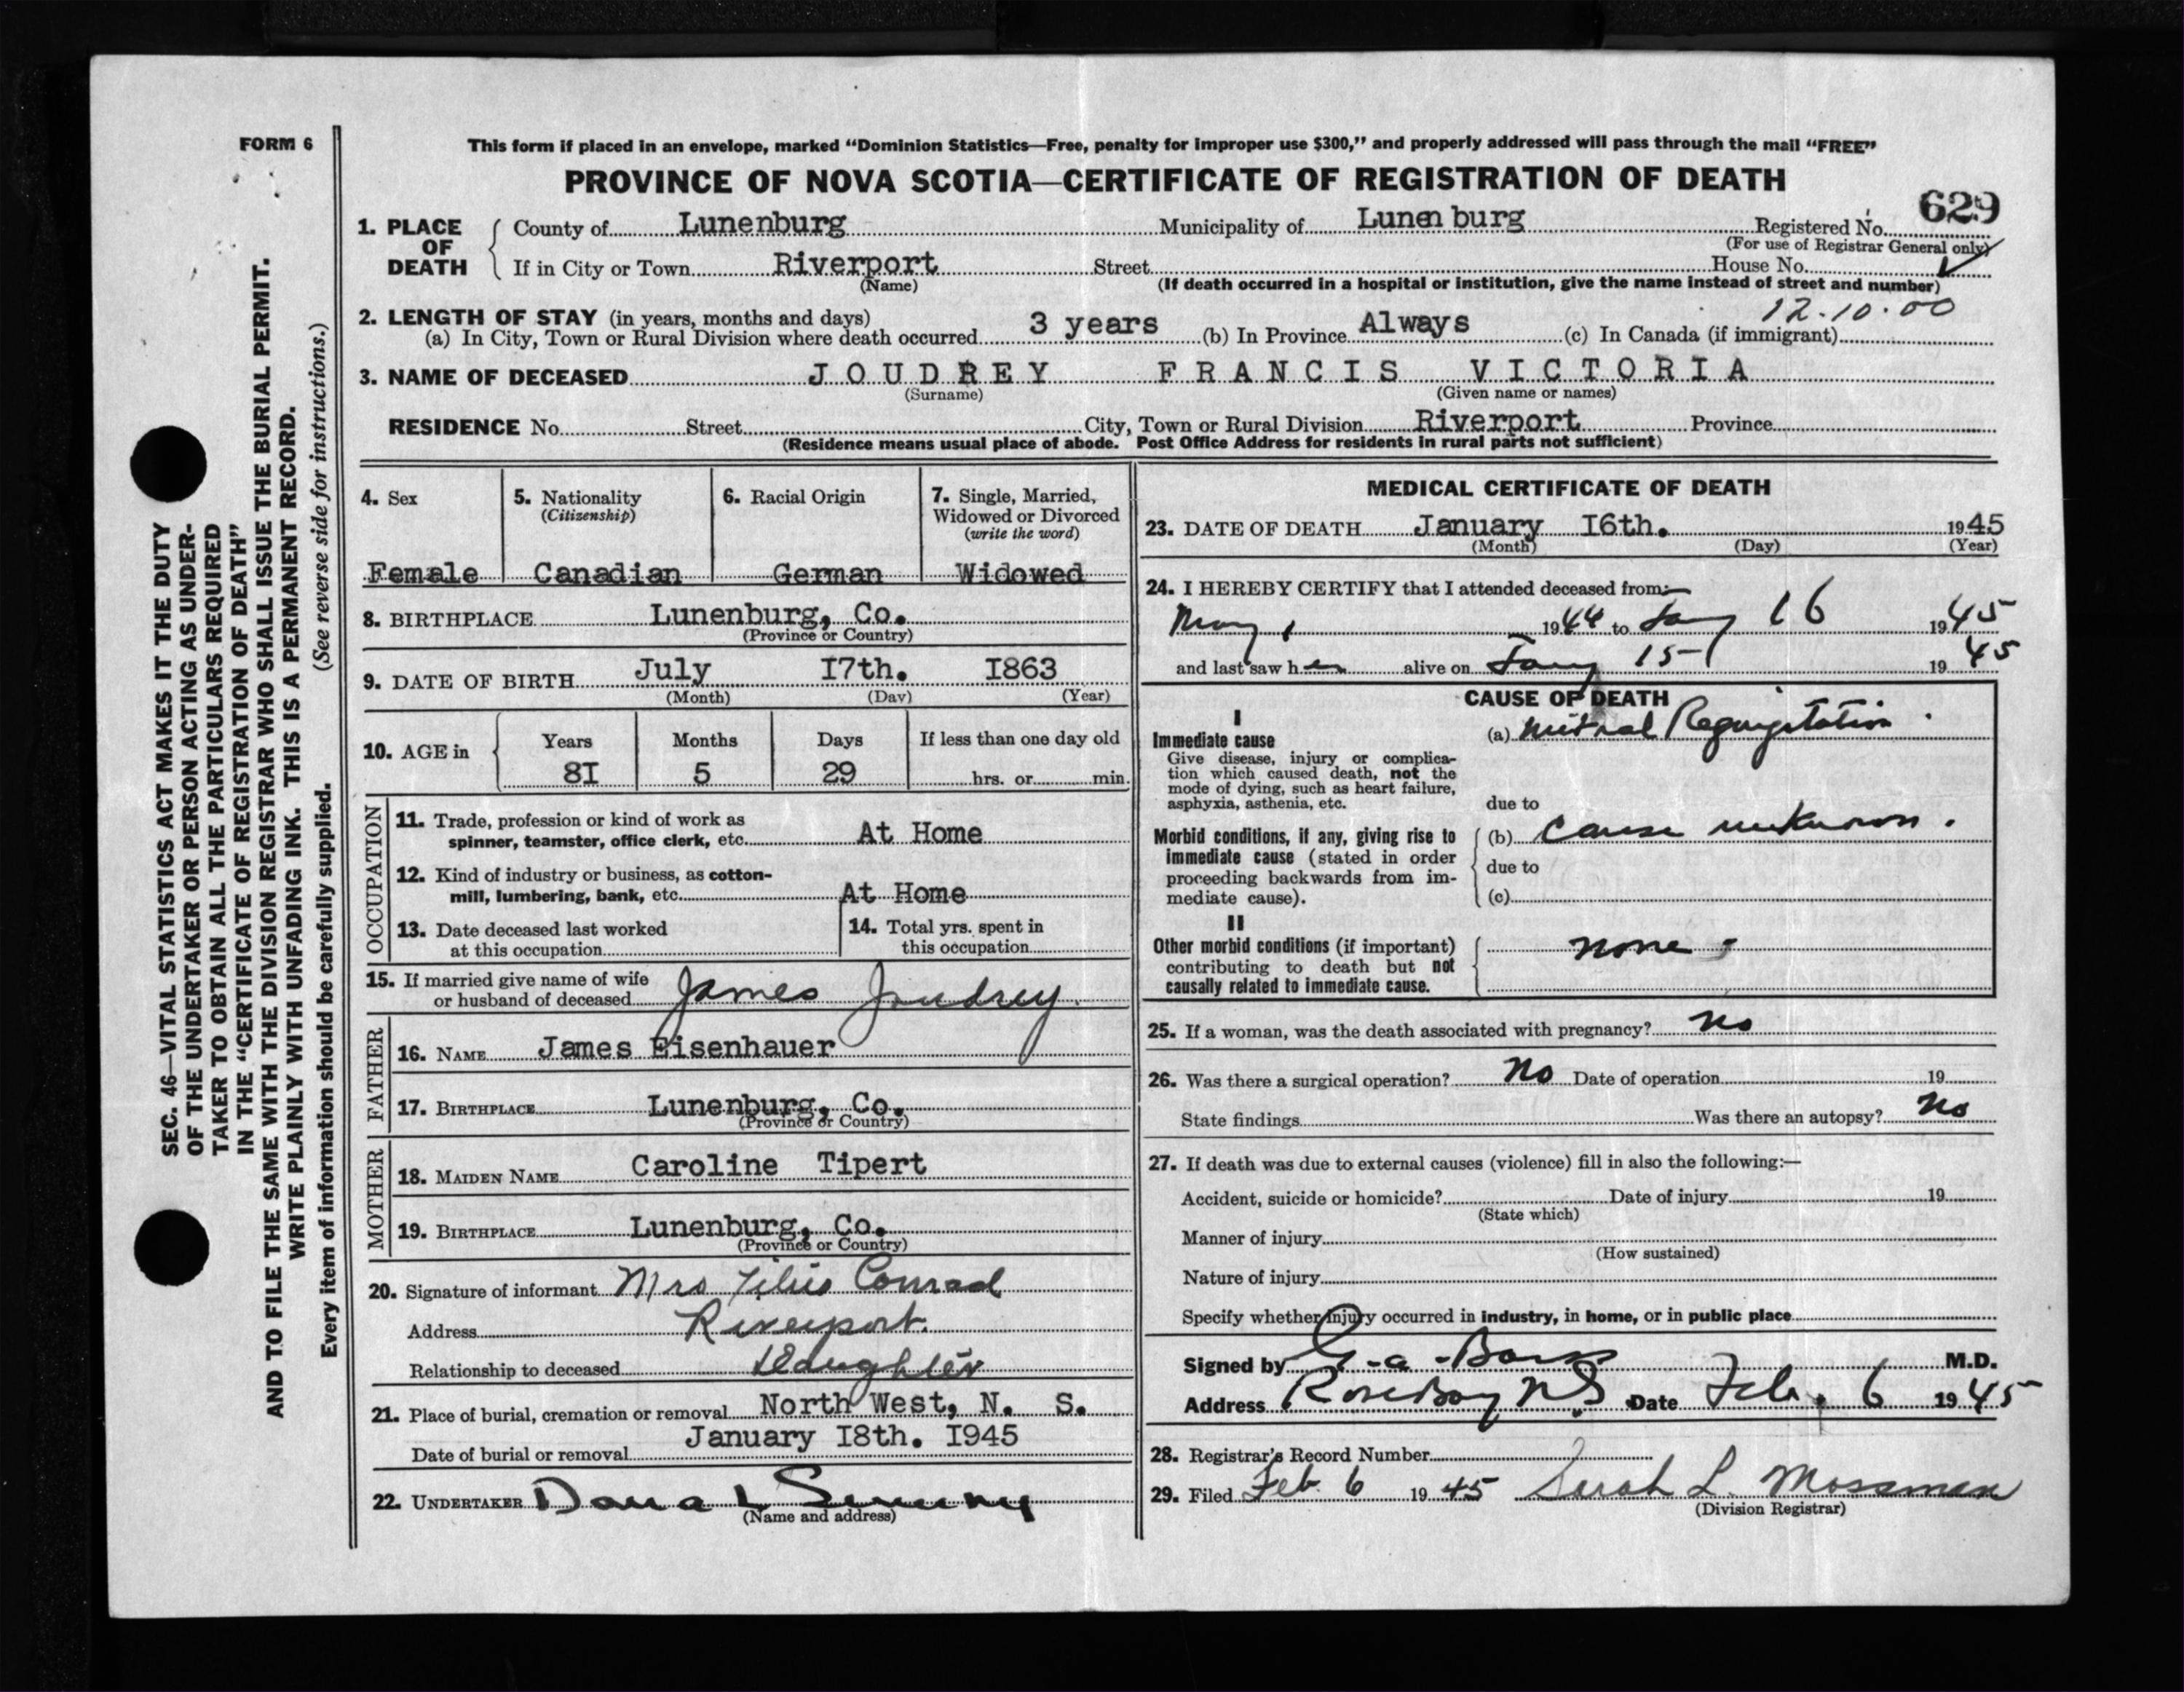 FORM 6
This form if placed in an envelope, marked "Dominion Statistics—Free, penalty for improper use $300," and properly addressed will pass through the mail "FREE"
PROVINCE OF NOVA SCOTIA—CERTIFICATE OF REGISTRATION OF DEATH
629
1. PLACE OF DEATH
County of Lunenburg Municipality of Lunenburg Registered No.
(For use of Registrar General only)
If in City or Town Riverport Street House No.
(Name) (If death occurred in a hospital or institution, give the name instead of street and number)
12.10.00
2. LENGTH OF STAY (in years, months and days)
(a) In City, Town or Rural Division where death occurred 3 years (b) In Province Always (c) In Canada (if immigrant)
3. NAME OF DECEASED JOUDREY FRANCIS VICTORIA
(Surname) (Given name or names)
RESIDENCE No. Street City, Town or Rural Division Riverport Province
(Residence means usual place of abode. Post Office Address for residents in rural parts not sufficient)
4. Sex 5. Nationality 6. Racial Origin 7. Single, Married,
(Citizenship) Widowed or Divorced
(write the word)
Female Canadian German Widowed
8. BIRTHPLACE Lunenburg, Co.
(Province or Country)
9. DATE OF BIRTH July I7th. I863
(Month) (Day) (Year)
10. AGE in Years Months Days If less than one day old
8I 5 29 hrs. or min.
OCCUPATION
11. Trade, profession or kind of work as
spinner, teamster, office clerk, etc. At Home
12. Kind of industry or business, as cotton-
mill, lumbering, bank, etc. At Home
13. Date deceased last worked
at this occupation
14. Total yrs. spent in
this occupation
15. If married give name of wife
or husband of deceased James Joudrey.
FATHER
16. NAME James Eisenhauer
17. BIRTHPLACE Lunenburg, Co.
(Province or Country)
MOTHER
18. MAIDEN NAME Caroline Tipert
19. BIRTHPLACE Lunenburg, Co.
(Province or Country)
20. Signature of informant Mrs Conrad
Address Riverport.
Relationship to deceased Daughter
21. Place of burial, cremation or removal North West, N. S.
Date of burial or removal January I8th. I945
22. UNDERTAKER Dana L
(Name and address)
MEDICAL CERTIFICATE OF DEATH
23. DATE OF DEATH January I6th. 1945
(Month) (Day) (Year)
24. I HEREBY CERTIFY that I attended deceased from:—
May 1 1944 to Jany 16 1945
and last saw her alive on Jany 15 1945
CAUSE OF DEATH
I
Immediate cause
Give disease, injury or complica-
tion which caused death, not the
mode of dying, such as heart failure,
asphyxia, asthenia, etc.
(a) Mitral Regurgitation
due to
Morbid conditions, if any, giving rise to
immediate cause (stated in order
proceeding backwards from im-
mediate cause).
(b) Cause unknown.
due to
(c)
II
Other morbid conditions (if important)
contributing to death but not
causally related to immediate cause.
none -
25. If a woman, was the death associated with pregnancy? no
26. Was there a surgical operation? No Date of operation 19
State findings Was there an autopsy? No
27. If death was due to external causes (violence) fill in also the following:—
Accident, suicide or homicide? Date of injury 19
(State which)
Manner of injury
(How sustained)
Nature of injury
Specify whether injury occurred in industry, in home, or in public place
Signed by G. a. M.D.
Address Rose Bay N.S. Date Feb. 6 1945
28. Registrar's Record Number
29. Filed Feb. 6 1945 Sarah L. Mossman
(Division Registrar)
SEC. 46—VITAL STATISTICS ACT MAKES IT THE DUTY
OF THE UNDERTAKER OR PERSON ACTING AS UNDER-
TAKER TO OBTAIN ALL THE PARTICULARS REQUIRED
IN THE "CERTIFICATE OF REGISTRATION OF DEATH"
AND TO FILE THE SAME WITH THE DIVISION REGISTRAR WHO SHALL ISSUE THE BURIAL PERMIT.
WRITE PLAINLY WITH UNFADING INK. THIS IS A PERMANENT RECORD.
Every item of information should be carefully supplied. (See reverse side for instructions.)